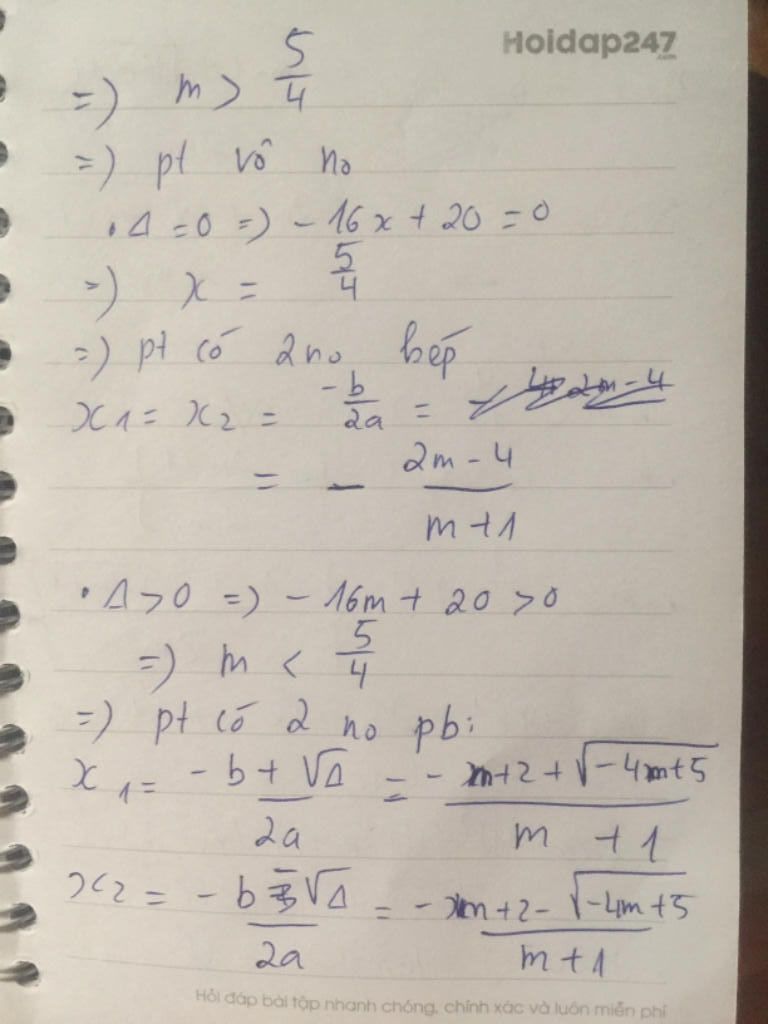 Hoidap247
.com
=) m > 5/4
=) pt vô no
. Δ = 0 =) - 16x + 20 = 0
=) x = 5/4
=) pt có 2 no kép
x1 = x2 = -b/2a = -
= - (2m - 4)/(m + 1)
• Δ > 0 =) - 16m + 20 > 0
=) m < 5/4
=) pt có 2 no pb:
x1 = (-b + √Δ)/2a = (-m+2+√(-4m+5))/(m + 1)
x2 = (-b - √Δ)/2a = (-m+2-√(-4m+5))/(m+1)
Hỏi đáp bài tập nhanh chóng, chính xác và luôn miễn phí